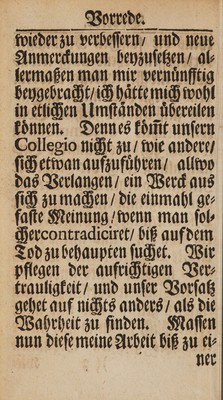 Vorrede.
wieder zu verbessern/ und neue
Anmerckungen beyzusetzen/ al-
lermaßen man mir vernünfftig
beygebracht/ ich hätte mich wohl
in etlichen Umständen übereilen
können. Denn es kom̃t unsern
Collegio nicht zu/ wie andere/
sich etwan aufzuführen/ allwo
das Verlangen/ ein Werck aus
sich zu machen/ die einmahl ge-
faste Meinung/ wenn man sol-
cher contradiciret/ biß auf dem
Tod zu behaupten suchet. Wir
pflegen der aufrichtigen Ver-
trauligkeit/ und unser Vorsatz
gehet auf nichts anders/ als die
Wahrheit zu finden. Massen
nun diese meine Arbeit biß zu ei-
ner